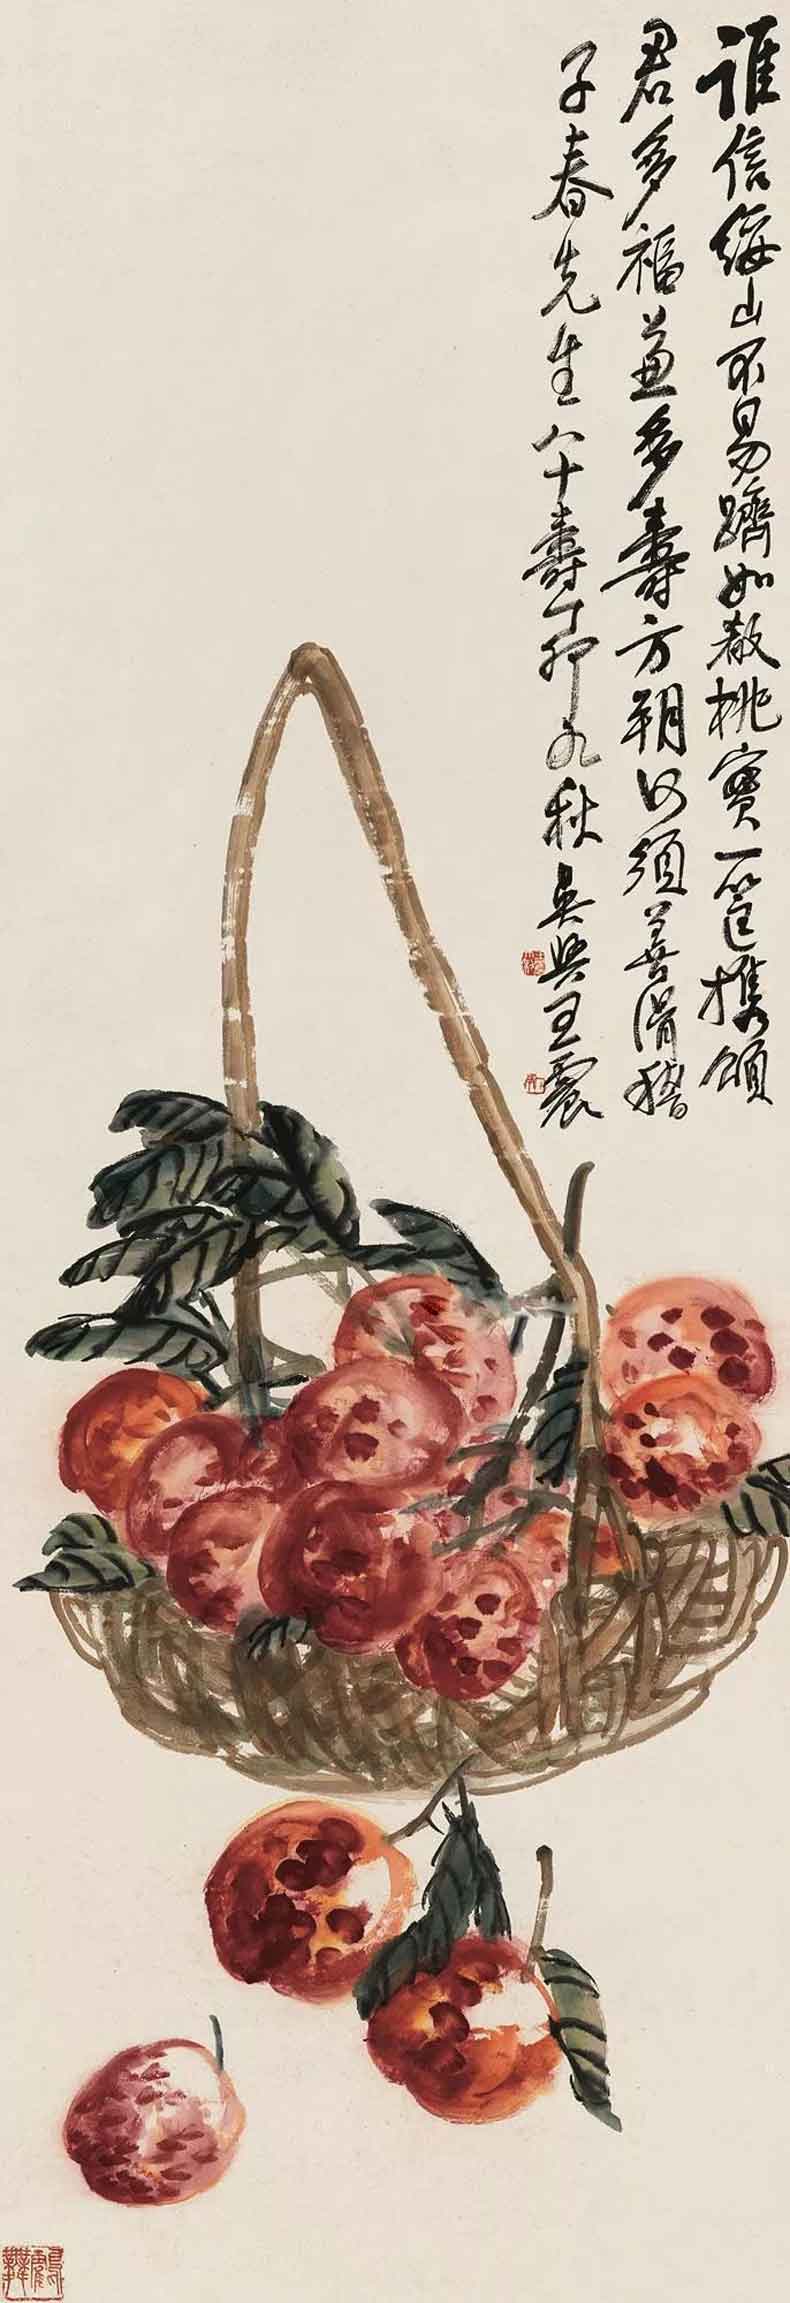 誰信綏山不易躋如散桃實一筐攜頌
君多福兼多壽方朔何須善滑稽
子春先生八十壽丁卯九秋吳興王震